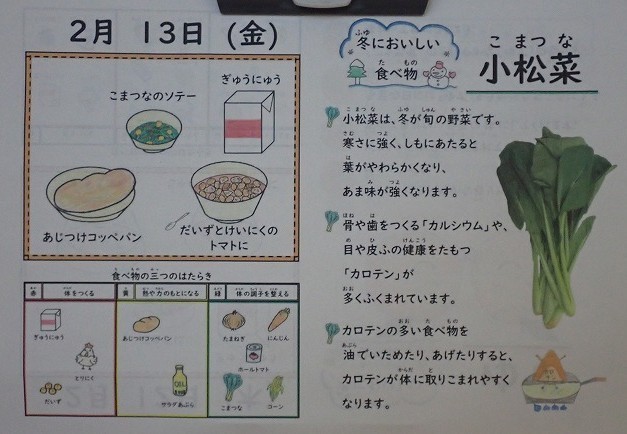 2月 13日 (金)
こまつなのソテー
ぎゅうにゅう
あじつけコッペパン
だいずとけいにくの
トマトに
食べ物の三つのはたらき
赤 体をつくる
黄 熱や力のもとになる
緑 体の調子を整える
ぎゅうにゅう
とりにく
だいず
あじつけコッペパン
サラダあぶら
たまねぎ
にんじん
ホールトマト
こまつな
コーン
冬においしい
食べ物
小松菜
小松菜は、冬が旬の野菜です。
寒さに強く、しもにあたると
葉がやわらかくなり、
あま味が強くなります。
骨や歯をつくる「カルシウム」や、
目や皮ふの健康をたもつ
「カロテン」が
多くふくまれています。
カロテンの多い食べ物を
油でいためたり、あげたりすると、
カロテンが体に取りこまれやすく
なります。